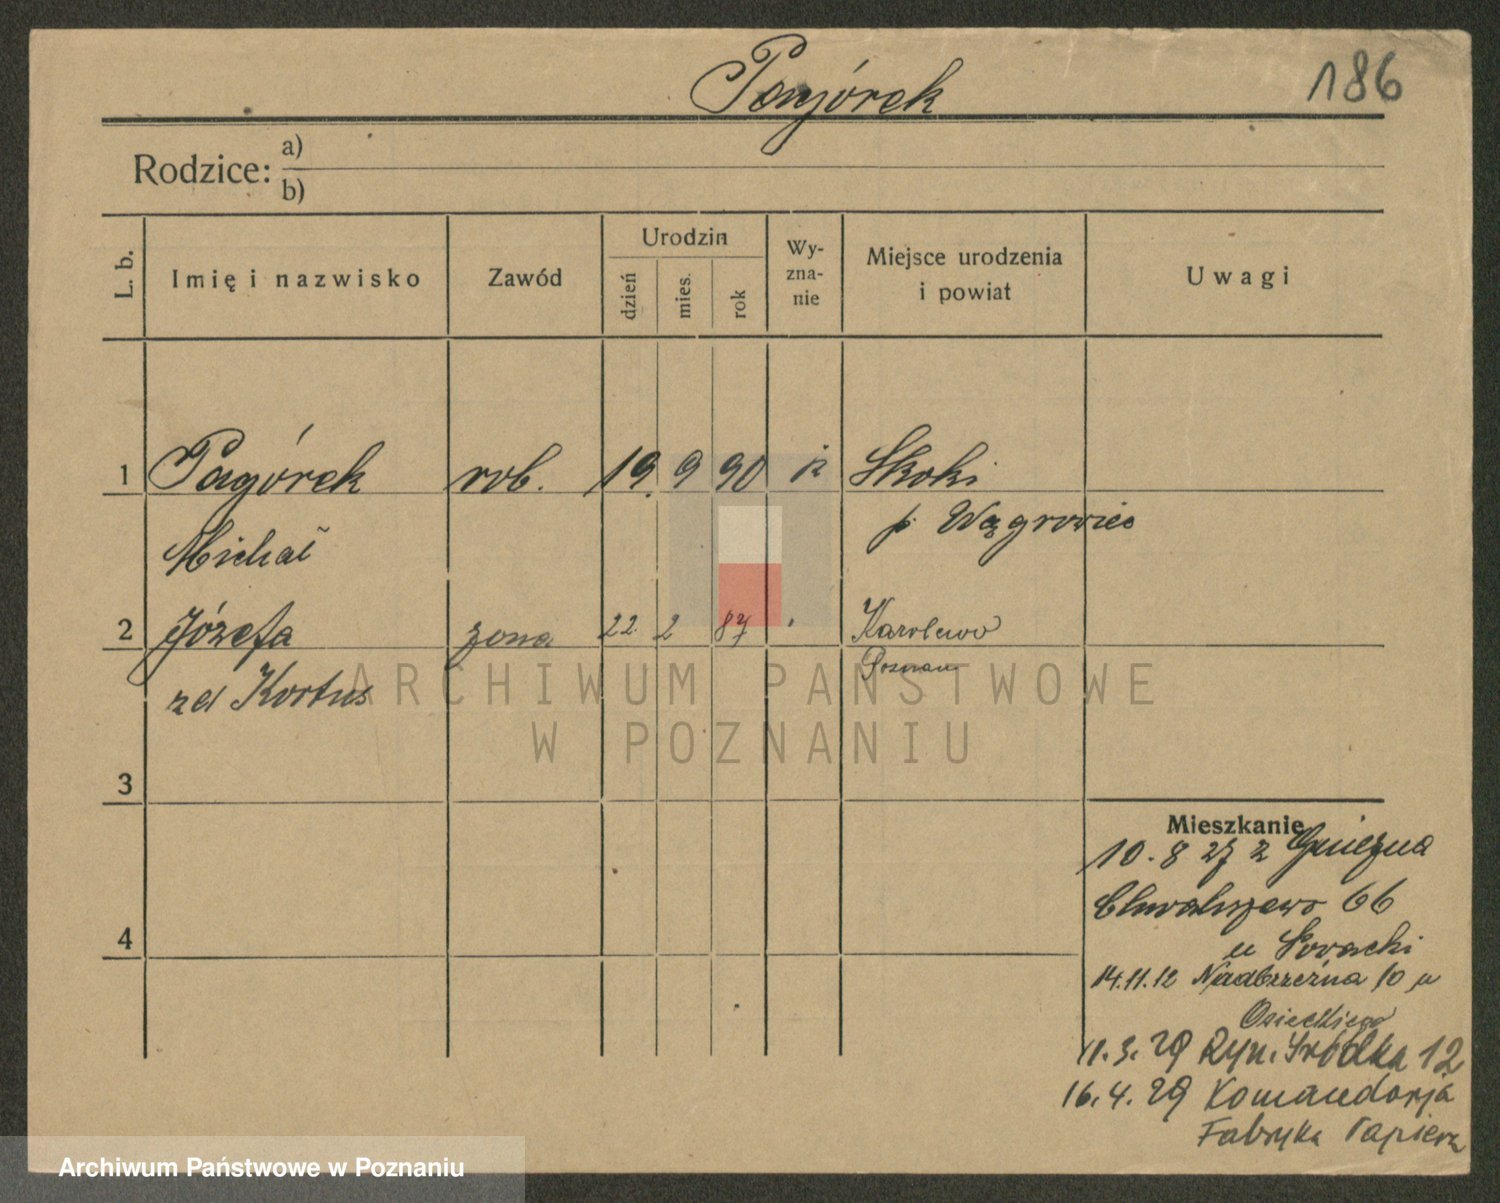 Pagórek
186
Rodzice:
a)
b)
L. b.
Imię i nazwisko
Zawód
Urodzin
dzień
mies.
rok
Wy-
zna-
nie
Miejsce urodzenia
i powiat
Uwagi
1 Pagórek rob. 19. 9 90 Skoki
Michał p. Wągrowiec
2 Józefa żona 22 2 87 Karolewo
Kortus Poznań
3
4
Mieszkanie
10. 8 27 z Gniezna
Chwaliszewo 66
u
14.11.12 Nadbrzeżna 10 u
Osieckiego
11. 3. 29 Ryn. Śródka 12
16. 4. 29 Komandorja
Fabryka Papieru
ARCHIWUM PAŃSTWOWE
W POZNANIU
Archiwum Państwowe w Poznaniu